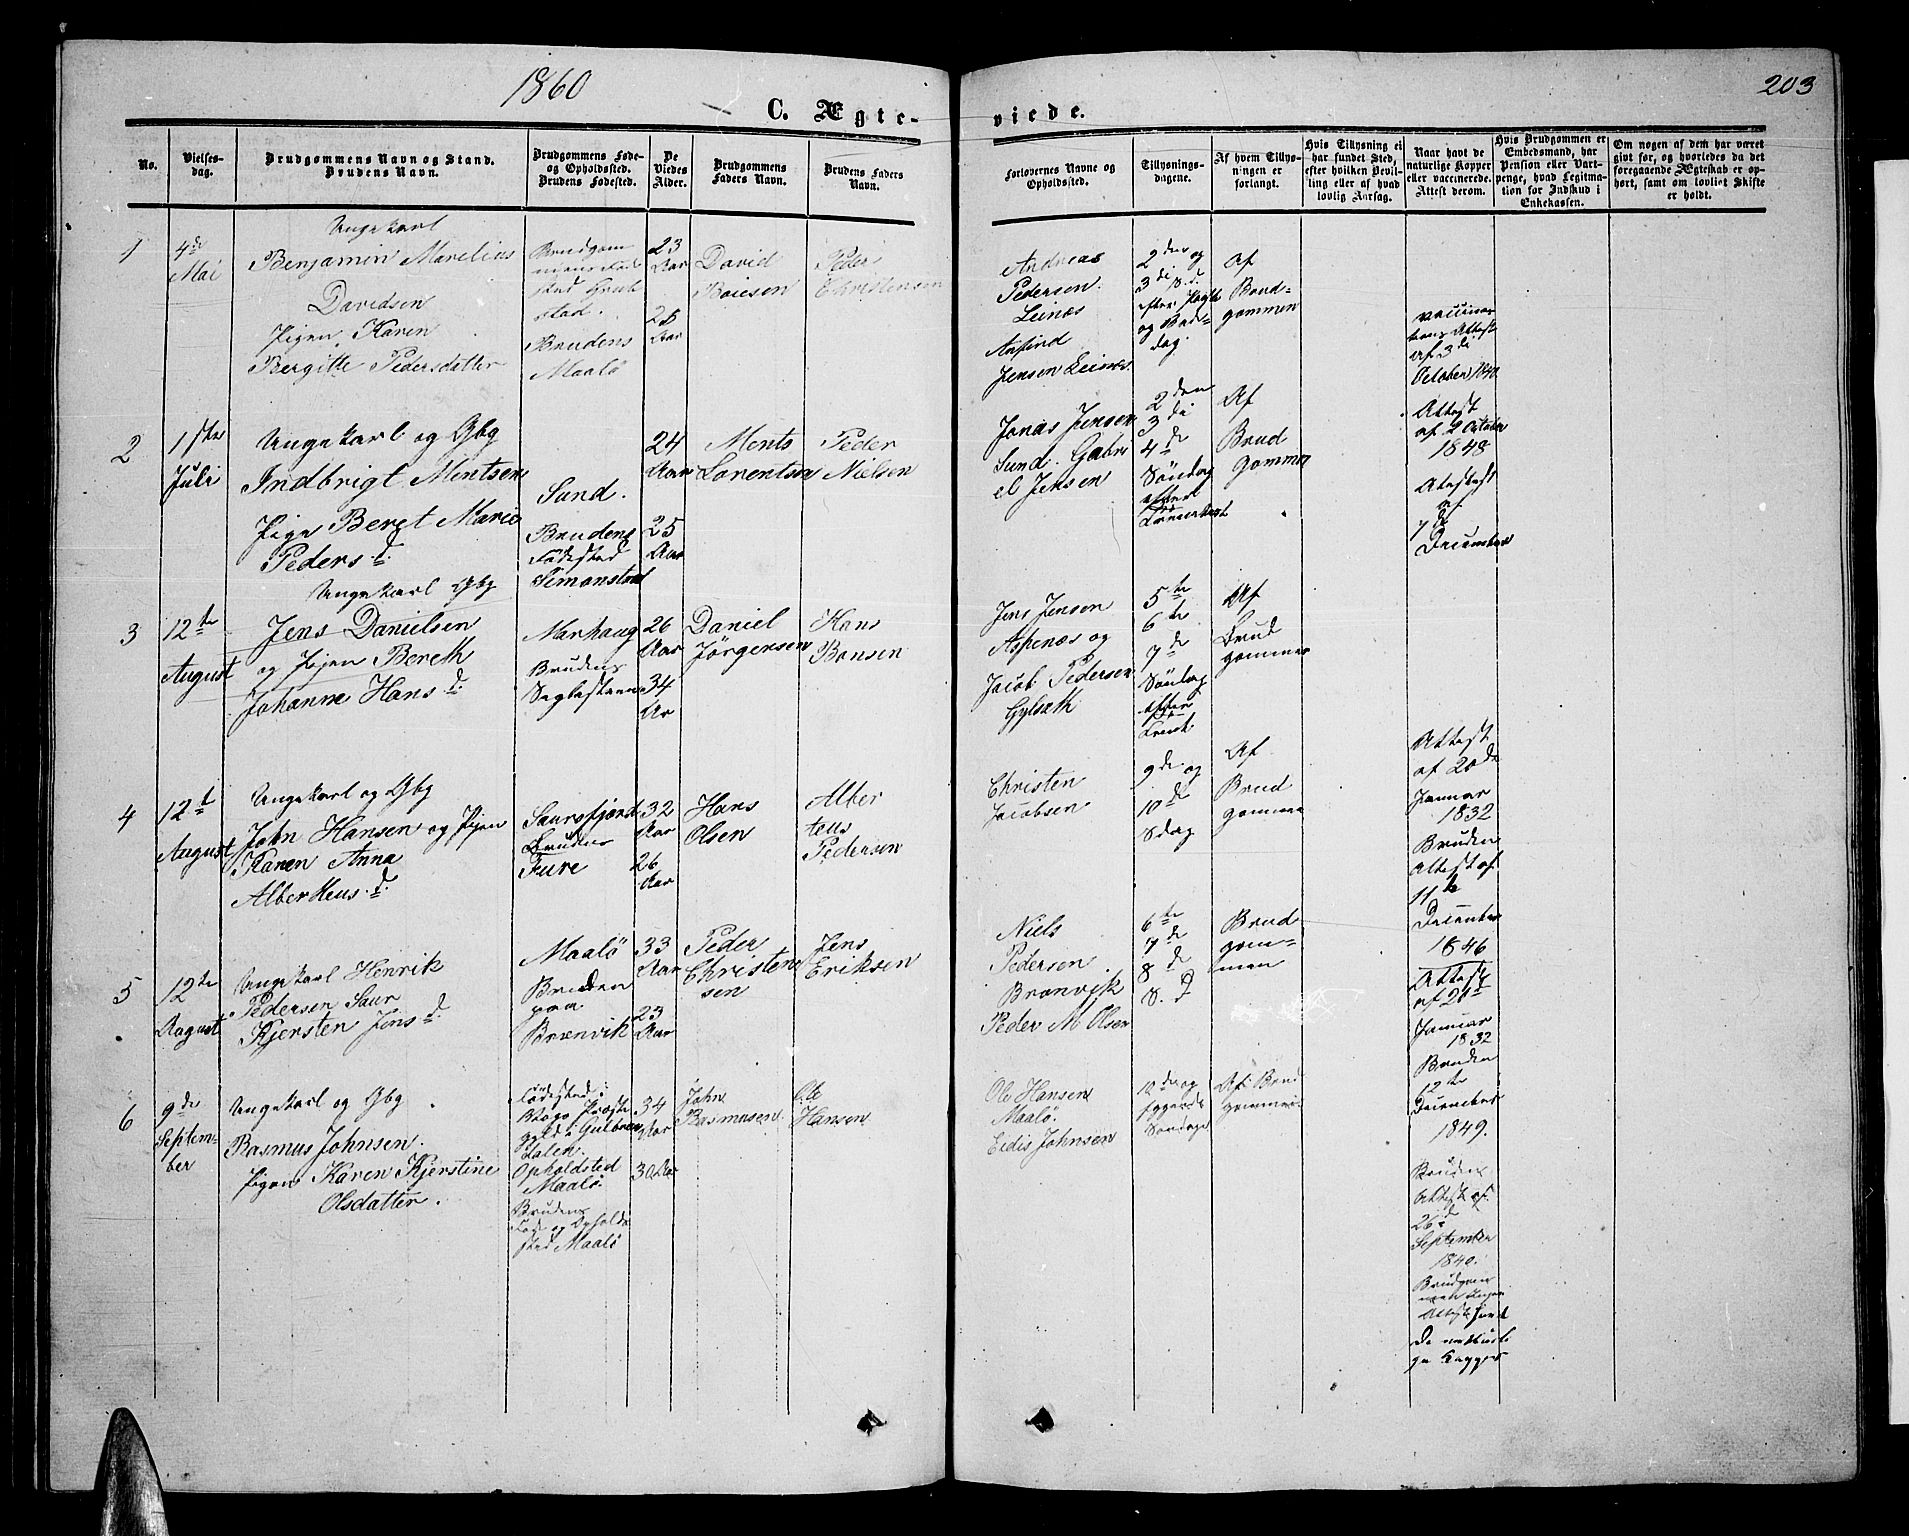 1860
203
C. Ægte-
viede.
No.
Vielses-
dag.
Brudgommens Navn og Stand.
Brudens Navn.
Brudgommens Føde-
og Opholdssted.
Brudens Fødested.
De
Viedes
Alder.
Brudgommens
Faders Navn.
Brudens Faders
Navn.
Forlovernes Navne og
Opholdssted.
Tillysnings-
dagene.
Af hvem Tillys-
ningen er
forlangt.
Hvis Tillysning ei
har fundet Sted,
efter hvilken Bevil-
ling eller af hvad
lovlig Aarsag.
Naar havt de
naturlige Kopper
eller vaccinerede.
Attest derom.
Hvis Brudgommen er
Embedsmand, har
Pension eller Vart-
penge, hvad Legitima-
tion for Indskud i
Enkekassen.
Om nogen af dem har været
givt før, og hvorledes da det
foregaaende Ægteskab er op-
hørt, samt om lovligt Skifte
er holdt.
1
4de
Mai
Ungekarl
Benjamin Marelius
Davidsen
Pigen Karen
Bergitte Pedersdatter
Brudgom
stad.
Brudens
Maalö
23
Aar
Aar
David
Boiesen
Peder
Christensen
Andreas
Pedersen
Leinæs
Anfind
Jensen Leinæs.
2den og
3di S.d.
og Bede-
dag.
Af
Brud-
gommen
Attest
af 3di
October 1840
2
1ste
Juli
Ungekarl og Gbg
Indbrigt Mentsen
Pige Beret Marie
Peders d.
Sund.
Brudens
Födested
Simonstad
24
Aar
25
Aar
Ments
Lorentsen
Peder
Nielsen
Jonas Jensen
Sund. Gabri
el Jensen
2den
3di
4de
Söndag
efter
Af
Brud
gommen
Attest
af 2 October
1848
Atestest
af
7de
December
3
12te
August
Ungekarl Gbg
Jens Danielsen
og Pigen Bereth
Johanne Hans d.
Marhaug
Brudens
Seglesteen
26
Aar
34
Aar
Daniel
Jörgensen
Hans
Bonsen
Jens Jensen
Aspenæs og
Jacob Pedersen
Gylseth
5te
6te
7de
Söndag
efter
Af
Brud
gommen
4
12t
August
Ungekarl og Gbg
John Hansen og Pigen
Karen Anna
Albertheus. d.
Saursfjord
Brudens
Fure
32
Aar
26
Aar
Hans
Olsen
Alber
teus
Pedersen
Christen
Jacobsen
9de og
10de
Sdag
Af
Brud
gommen
Attest
af 20de
Januar
1832
Bruden
Attest af
11te
December
1846
5
12te
August
Ungekarl Henrik
Pedersen Saur
Kjersten Jens d.
Maalö
Bruden
paa
Brænvik
33
Aar
23
Aar
Peder
Christen
sen
Jens
Eriksen
Niels
Pedersen
Brænvik
Peder M Olsen
6te
7de
8de
S. d
Brud
gom-
men
Attest
af 20de
Januar
1832
Bruden
12te
December
1849.
6
9de
Septem-
ber
Ungekarl og Gbg
Rasmus Johnsen.
Pigen Karen Kjerstine
Olsdatter.
Födested i
Vaage Præste
gjeld i Gulbran
dalen.
Opholdsted
Maalö.
Brudens
Föde og Opholds
sted Maalö
34
Aar
30 Aar
John
Rasmusen
Ole
Hansen
Ole Hansen
Maalö.
Eidis Johnsen
10de og
Söndag
Af Brud
gommen
Brudens
Attest af
26de
September
1840.
Brudgom
men ingen
Attest